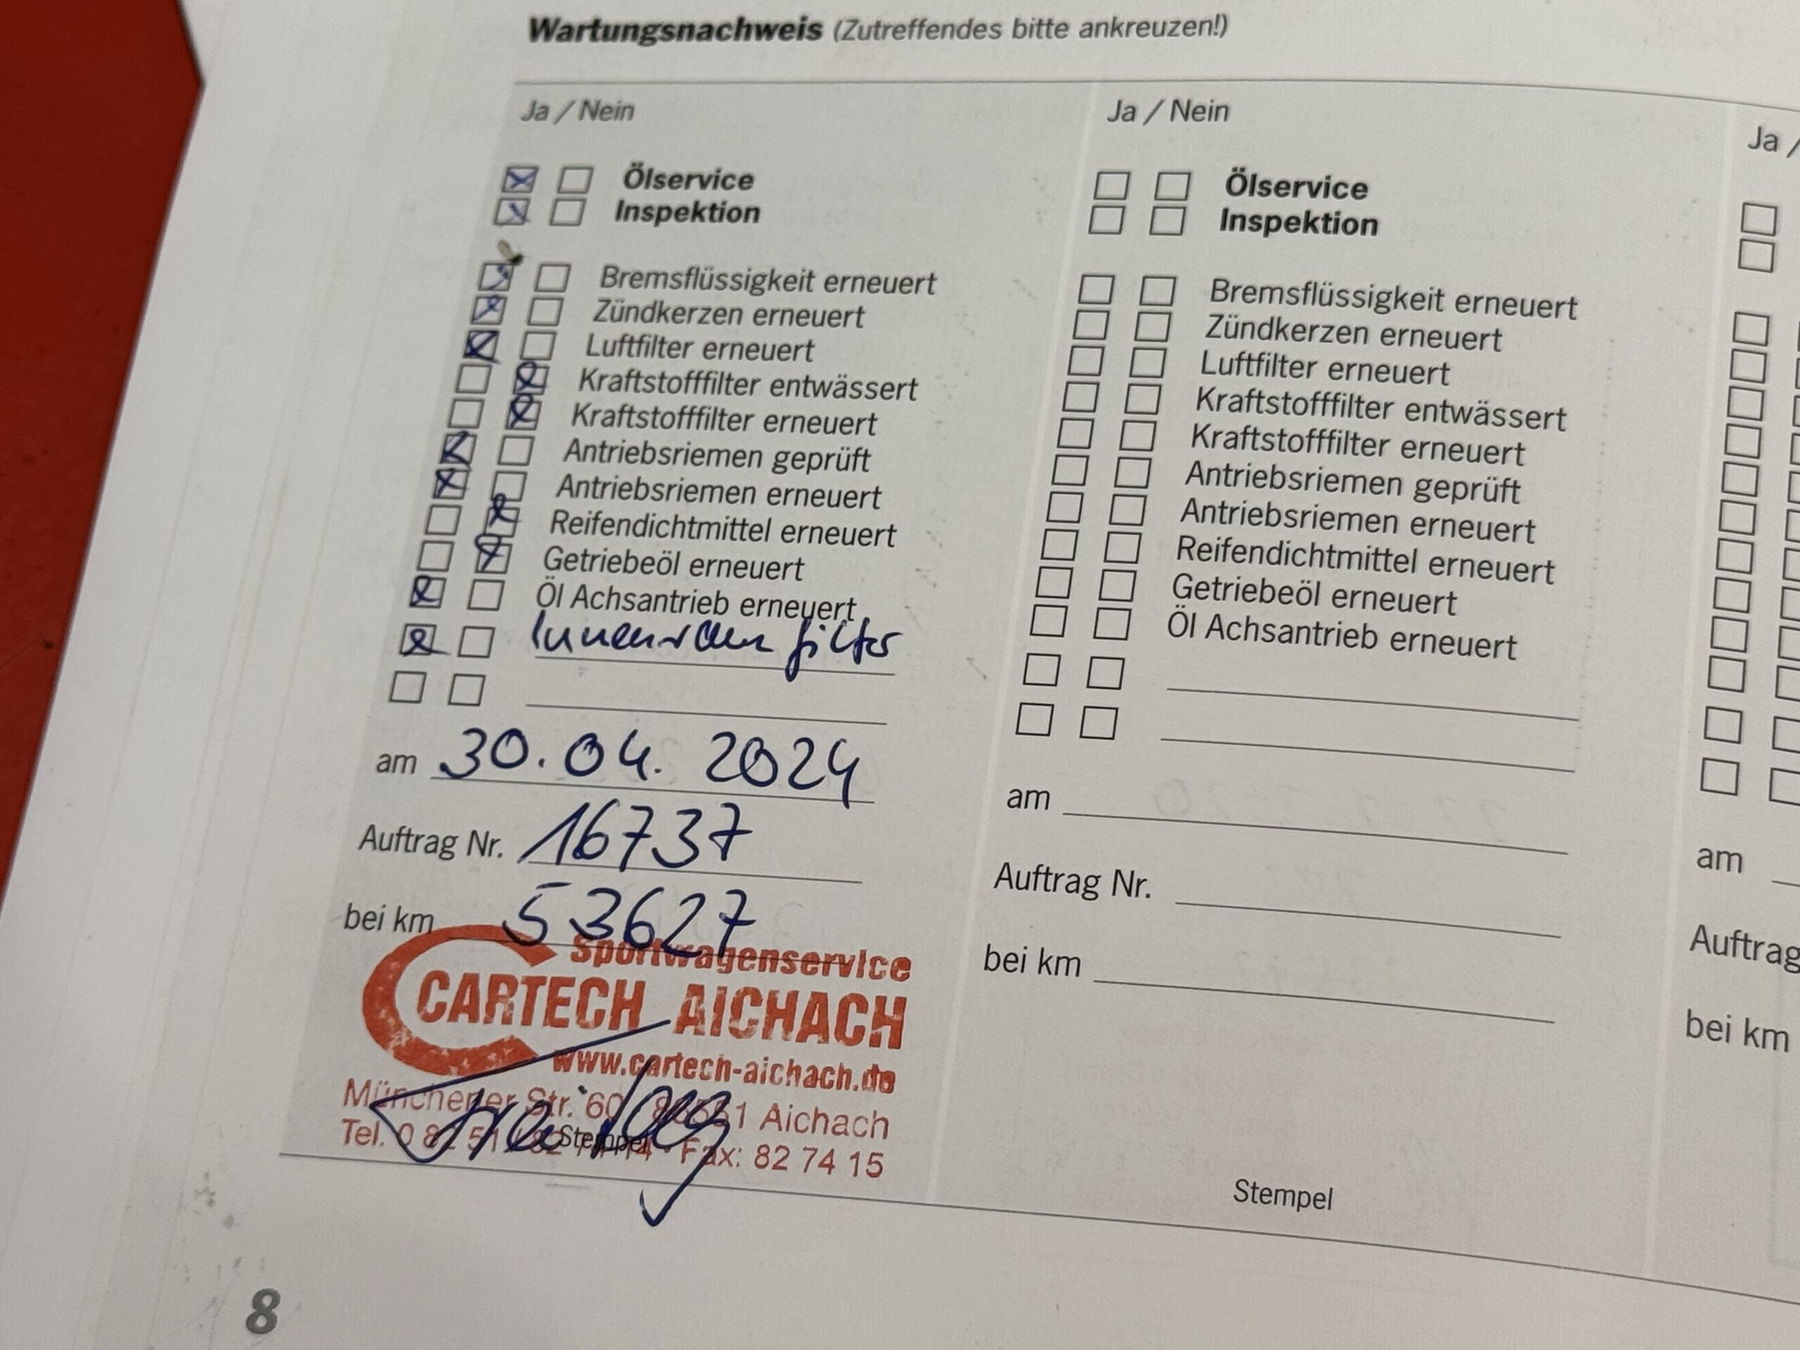 Wartungsnachweis (Zutreffendes bitte ankreuzen!)
Ja / Nein
Ölservice
Inspektion
Bremsflüssigkeit erneuert
Zündkerzen erneuert
Luftfilter erneuert
Kraftstofffilter entwässert
Kraftstofffilter erneuert
Antriebsriemen geprüft
Antriebsriemen erneuert
Reifendichtmittel erneuert
Getriebeöl erneuert
Öl Achsantrieb erneuert
Innenraumfilter
am 30.04.2024
Auftrag Nr. 16737
bei km 53627
Sportwagenservice
CARTECH AICHACH
www.cartech-aichach.de
Münchener Str. 60 Aichach
Tel. Fax: 82 74 15
Stempel
Ja / Nein
Ölservice
Inspektion
Bremsflüssigkeit erneuert
Zündkerzen erneuert
Luftfilter erneuert
Kraftstofffilter entwässert
Kraftstofffilter erneuert
Antriebsriemen geprüft
Antriebsriemen erneuert
Reifendichtmittel erneuert
Getriebeöl erneuert
Öl Achsantrieb erneuert
am
Auftrag Nr.
bei km
Stempel
Ja /
am
Auftrag
bei km
8